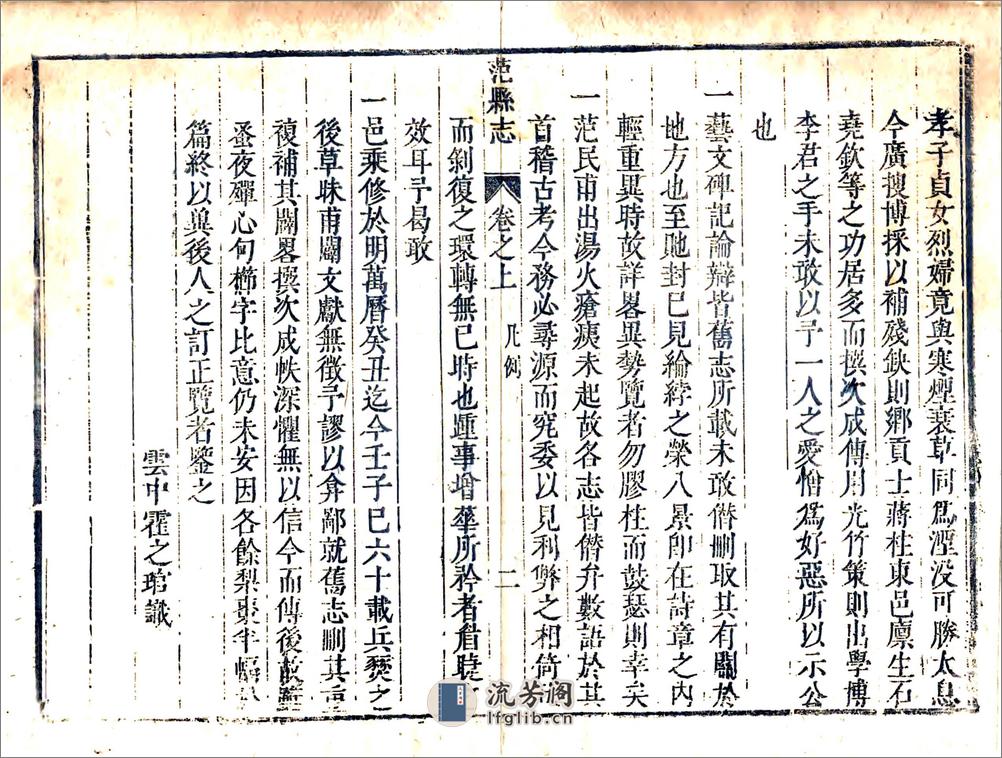 孝子貞女烈婦竟與寒煙衰草同爲湮没可勝太息
今廣搜博採以補殘缺則鄉貢士蔣柱東邑廩生石
堯欽等之功居多而撰次成傳用光竹策則出學博
李君之手未敢以予一人之愛憎爲好惡所以示公
也
一藝文碑記論辯皆舊志所載未敢僣删取其有關於
地方也至貤封已見綸綍之榮八景即在詩章之内
輕重異時故詳畧異勢覽者勿膠柱而鼓瑟則幸矣
一范民甫出湯火瘡痍未起故各志皆僣弁數語於其
首稽古考今務必尋源而究委以見利弊之相倚
范縣志 卷之上 凡例 二
而剝復之環轉無已時也踵事增華所矜者
效耳予曷敢
一邑乘修於明萬曆癸丑迄今壬子已六十載兵燹之
後草昧甫闢文獻無徵予謬以弇鄙就舊志刪其
複補其闕畧撰次成帙深懼無以信今而傳後
蚤夜殫心句櫛字比意仍未安因各餘梨棗半幅
篇終以冀後人之訂正覽者鑒之
雲中霍之琯識
流芳阁
lfglib.cn